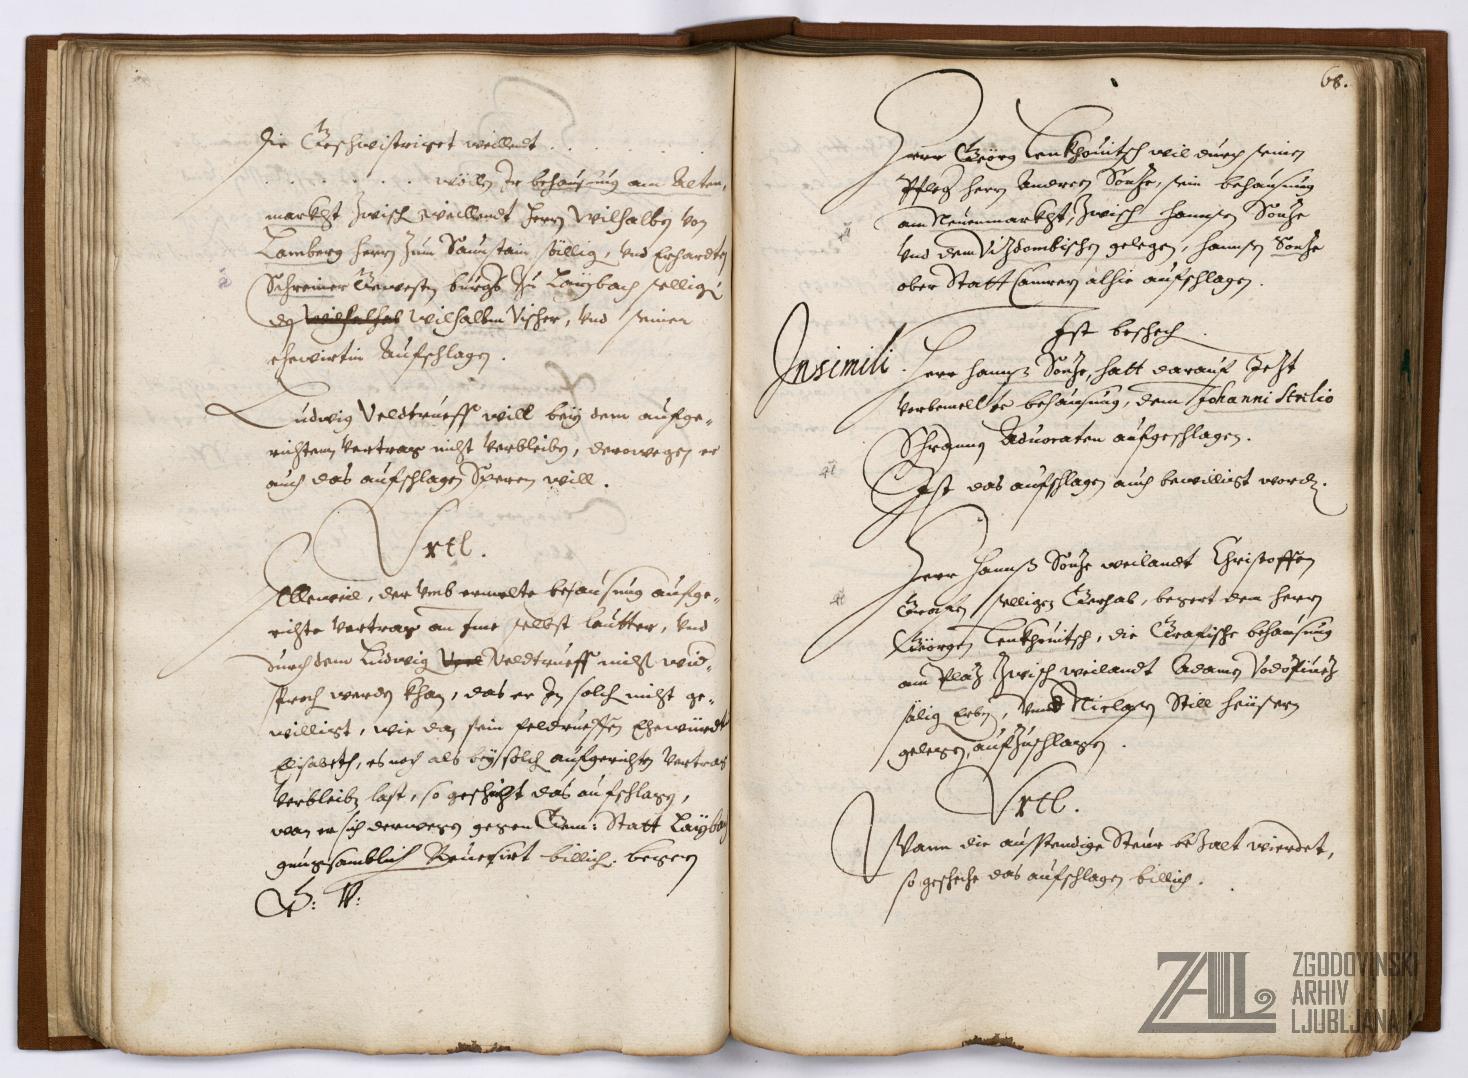 die Geschwistriget weillendt . . . . . .
. . . . . . wöllen Ir behausung am Alten,
markht zwisch weillendt Herrn Wilhalben von
Lamberg Herrn zum Saunstain sällig, vnd Erhardten
Schreiner Gewesten burgers zu Laybach selligen
wilhalben Vischer, vnd seiner
ehewirtin Aufschlagen.
Ludwig Veldtrueff will bey dem aufge,,
richtem Vertrag nicht verbleiben, derowegen er
auch das aufschlagen Speren will.
Vrtl.
Alleweil, der vmb vermelte behausung aufge,,
richte Vertrag an Ime selbst lautter, vnd
durch dem Ludwig Veldtrueff nicht wid,,
sproch werden khan, das er In solch nicht ge,,
willigt, wie dan sein Feldrueffen Ehewürdt
Elisabeth, es noch als bey solch aufgerichten Vertrag
verbleiben last, so geschicht das aufschlagen,
wan er sich derwegen gegen Gem: Statt Laybach
genuegsamblich billich. begern
G: V:
68.
Herr Geörg Lenkhouitsch wil durch seinen
Pfleger Herrn Andreen Sonze, sein behausung
am Neuenmarkht, zwisch Hannsen Sonze
vnd dem Vizdombischen gelegen, Hannsen Sonze
ober Statt Camrer alhie aufschlagen.
Ist beschech.
Insimili. Herr Hannß Sonze, hatt darauf Jezt
vermelte behausung, dem Johanni Strilio
Schrannen Aduocaten aufgeschlagen.
Ist das aufschlagen auch bewilligt worden.
Herr Hannß Sonze weilandt Christoffen
selligen Gerhab, begert dem Herrn
Geörgen Lenkhouitsch, die Grafische behausung
am Plaz zwisch weilandt Adamen
sälig Erben, vnnd Niclasen Still Heüsern
gelegen, aufzuschlagen.
Vrtl.
Wann die ausstendige Steur bezalt wierdet,
so geschehe das aufschlagen billich.
ZAL
ZGODOVINSKI
ARHIV
LJUBLJANA